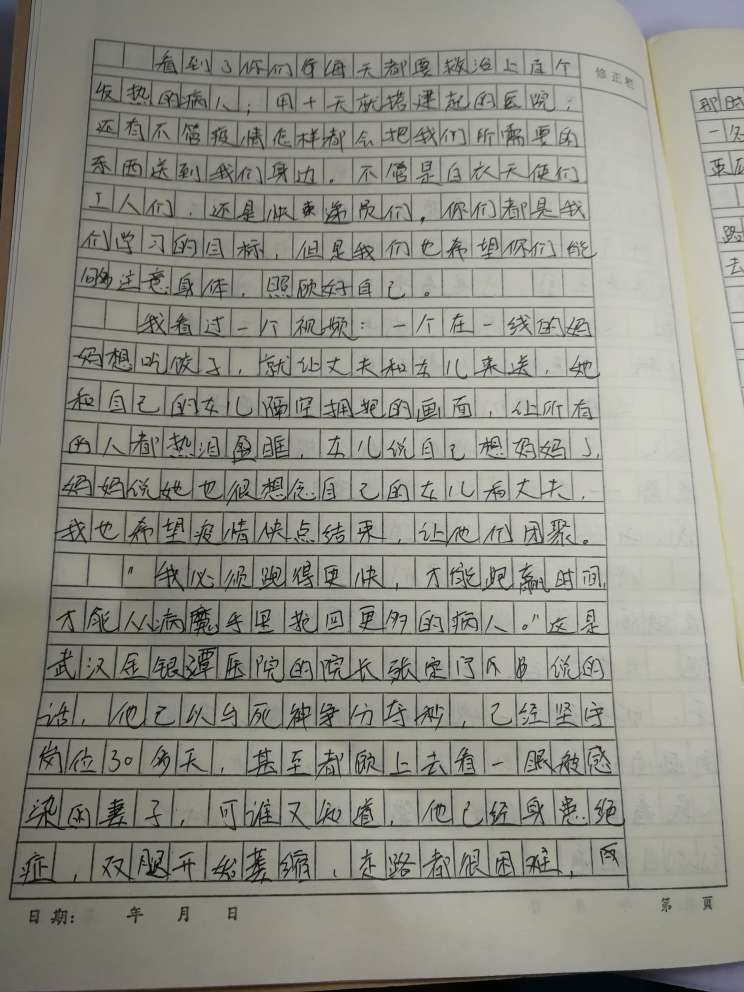 看到了你们每天都要救治上百个
发热的病人；用十天就搭建起的医院；
还有不管疫情怎样都会把我们所需要的
东西送到我们身边。不管是白衣天使们
工人们，还是快递员们，你们都是我
们学习的目标，但是我们也希望你们能
够注意身体，照顾好自己。
我看过一个视频：一个在一线的妈
妈想吃饺子，就让丈夫和女儿来送，她
和自己的女儿隔空拥抱的画面，让所有
的人都热泪盈眶，女儿说自己想妈妈了，
妈妈说她也很想念自己的女儿和丈夫，
我也希望疫情快点结束，让他们团聚。
"我必须跑得更快，才能跑赢时间，
才能从病魔手里抢回更多的病人。"这是
武汉金银潭医院的院长张定宇说的
话，他已以与死神争分夺秒，已经坚守
岗位30多天，甚至都顾上去看一眼被感
染的妻子，可谁又知道，他已经身患绝
症，双腿开始萎缩，走路都很困难，
修正栏
日期： 年 月 日
第 页
那时
一
路
去